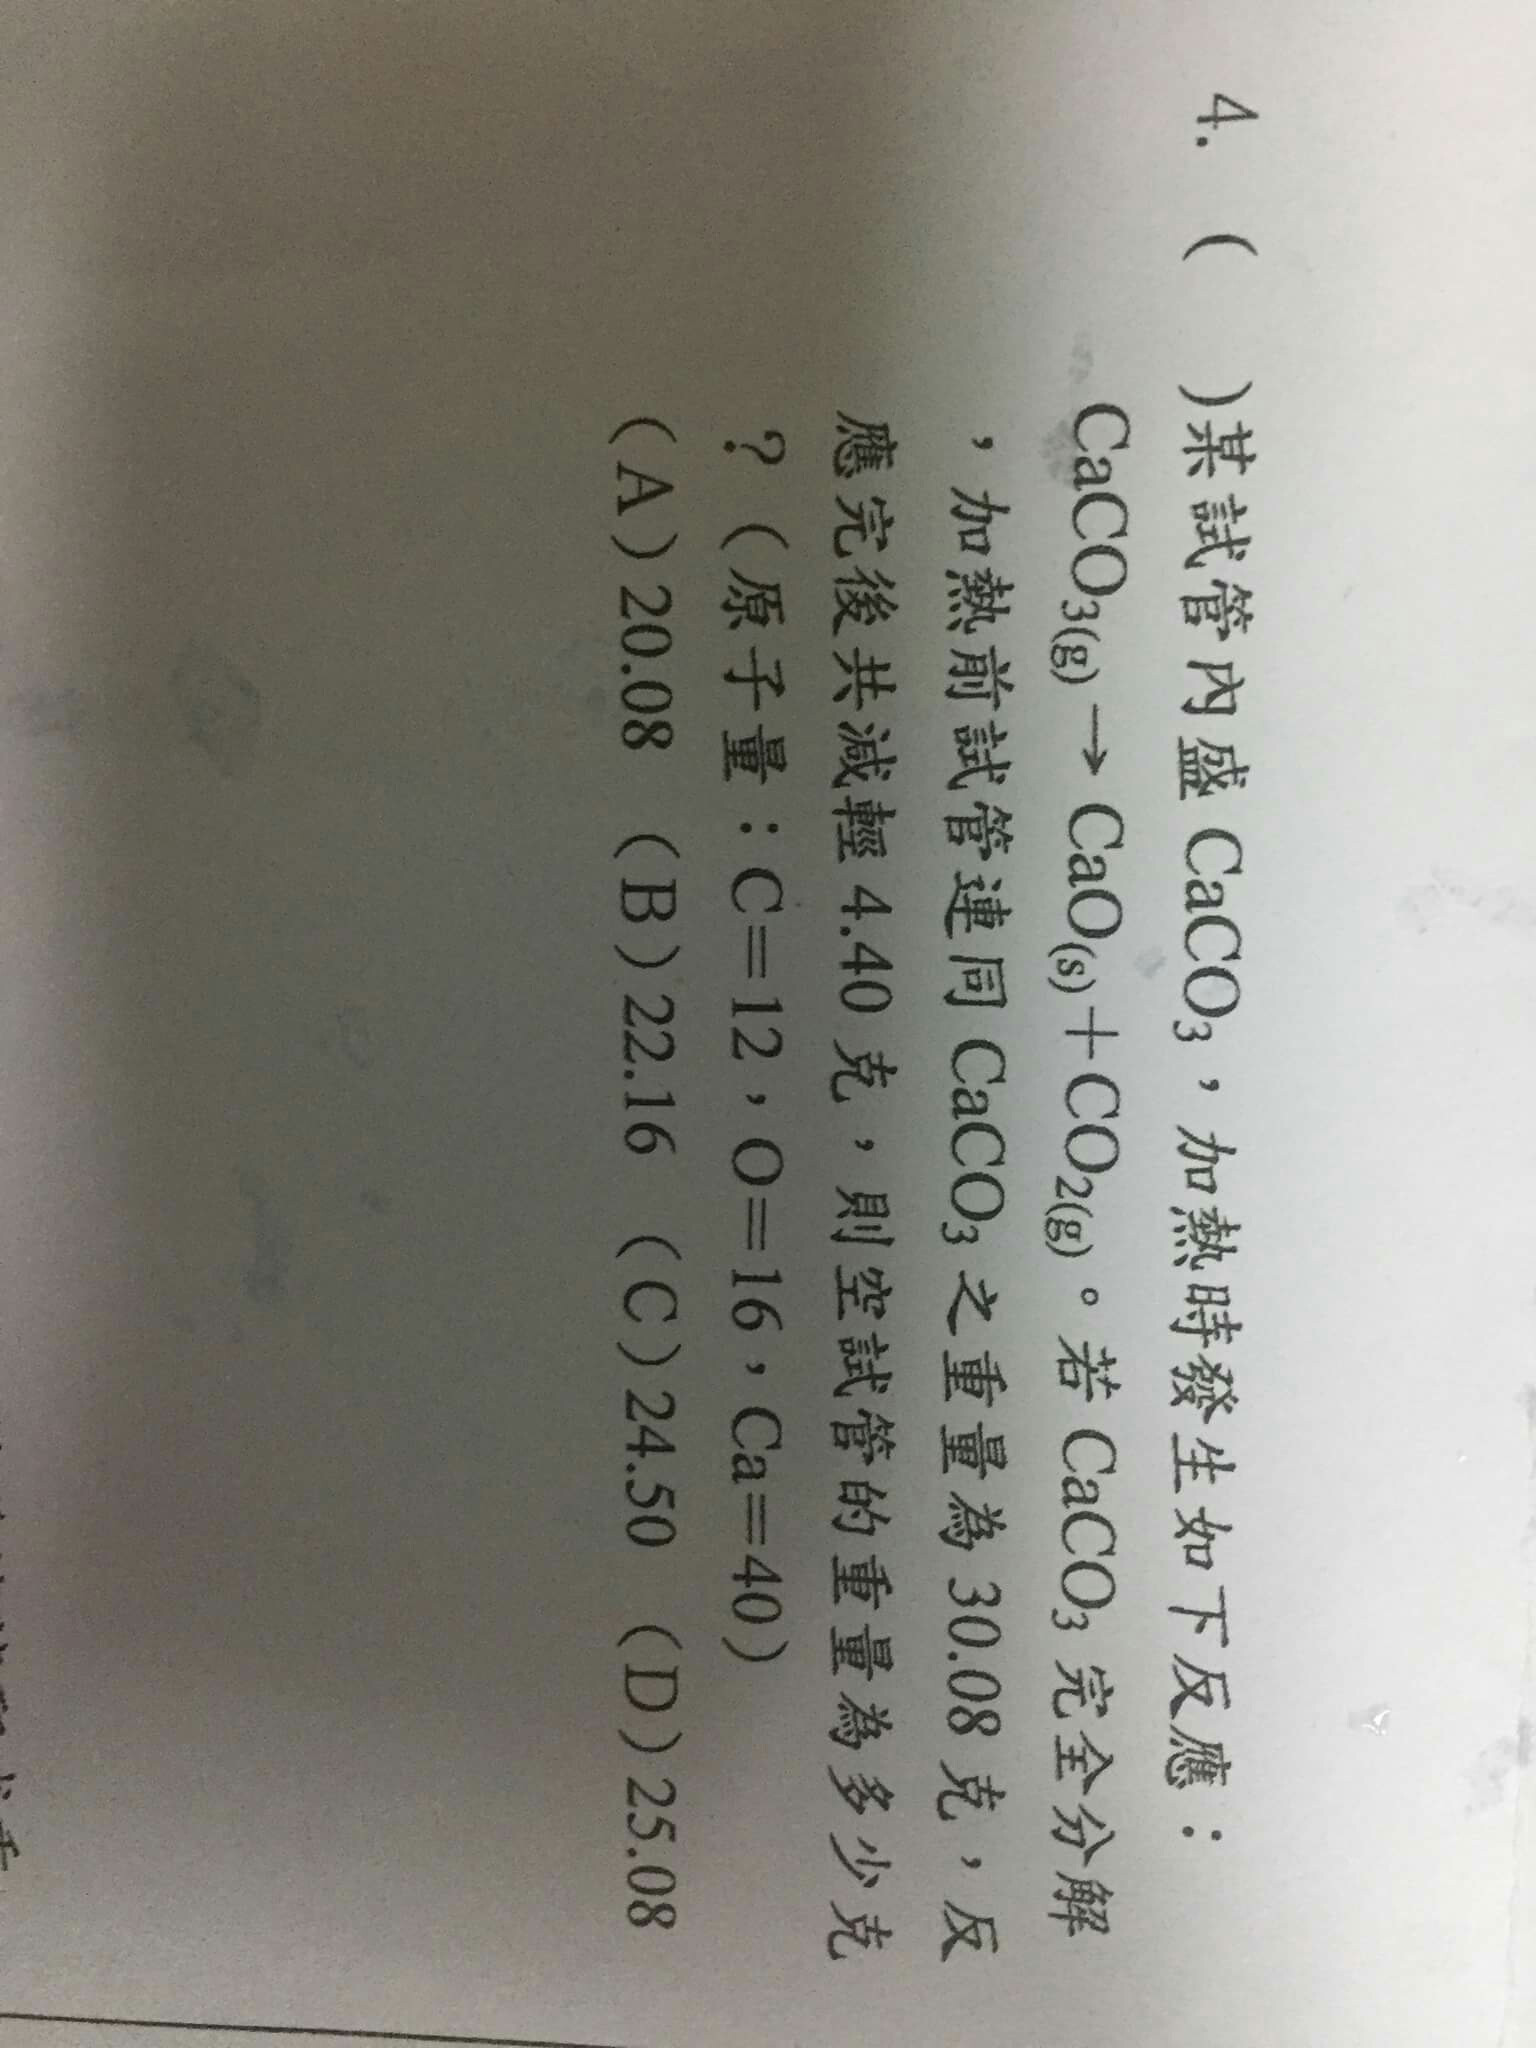 4. (　)某試管內盛 CaCO₃，加熱時發生如下反應：
CaCO₃₍g₎→CaO₍s₎＋CO₂₍g₎。若 CaCO₃ 完全分解
，加熱前試管連同 CaCO₃ 之重量為 30.08 克，反
應完後共減輕 4.40 克，則空試管的重量為多少克
？（原子量：C＝12，O＝16，Ca＝40）
（A）20.08 （B）22.16 （C）24.50 （D）25.08